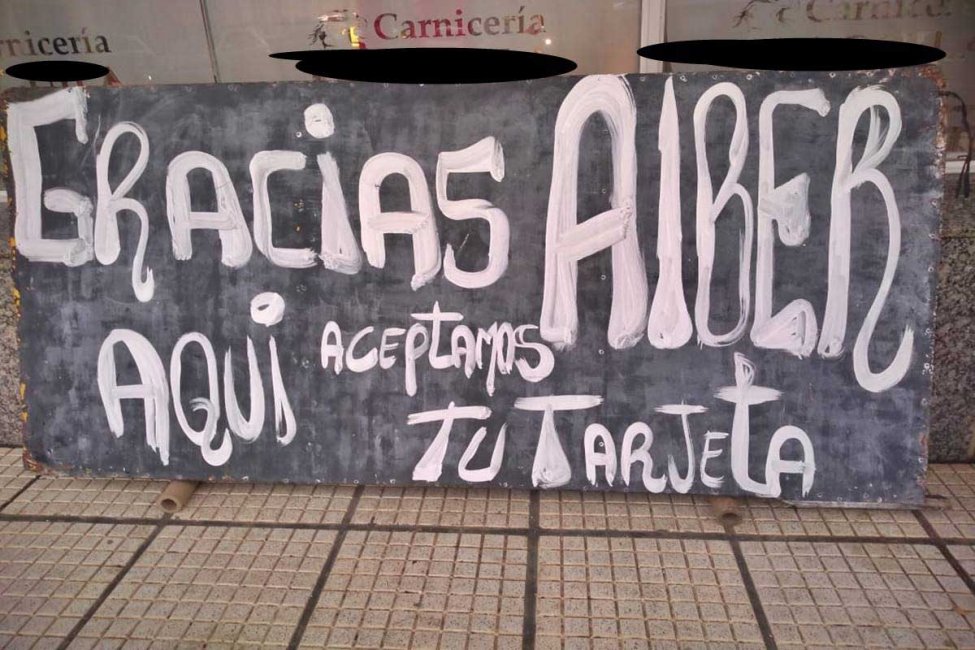 rnicería
Carnicería
Carnicer
GRACIAS AIBER
AQUI ACEPTAMOS
TU TARJETA